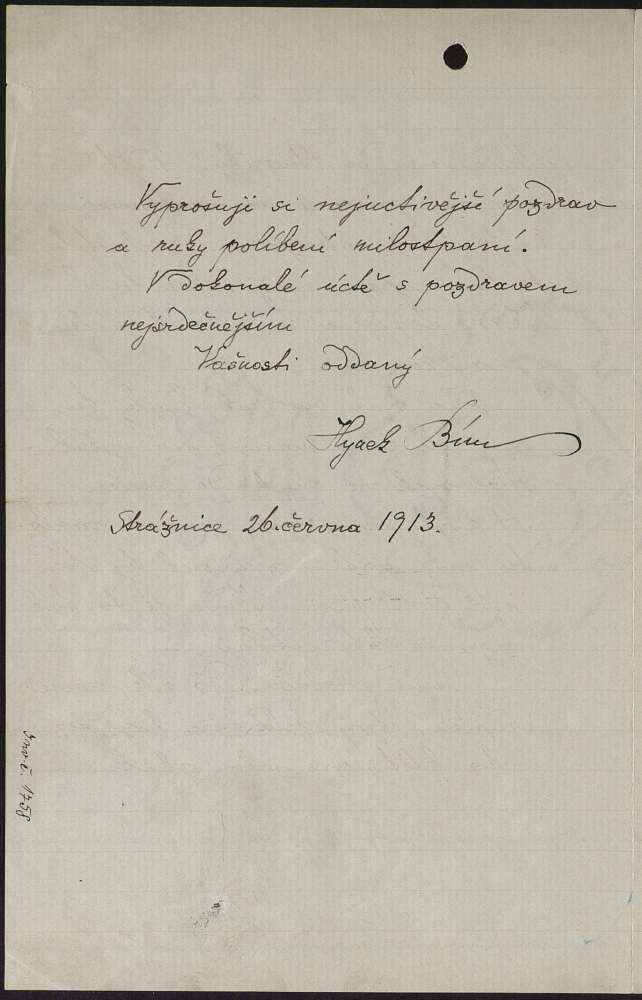 Vyprošuji si nejuctivější pozdrav
a ruky políbení milostpaní.
V dokonalé úctě s pozdravem
nejsrdečnějším
Vašnosti oddaný
Hyack Bím
Strážnice 26. června 1913.
Inv. č. 1758